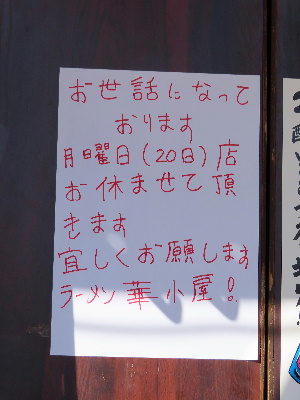 お世話になって
おります
月曜日(20日)店
お休ませて頂
きます
宜しくお願します
ラーメン華小屋!